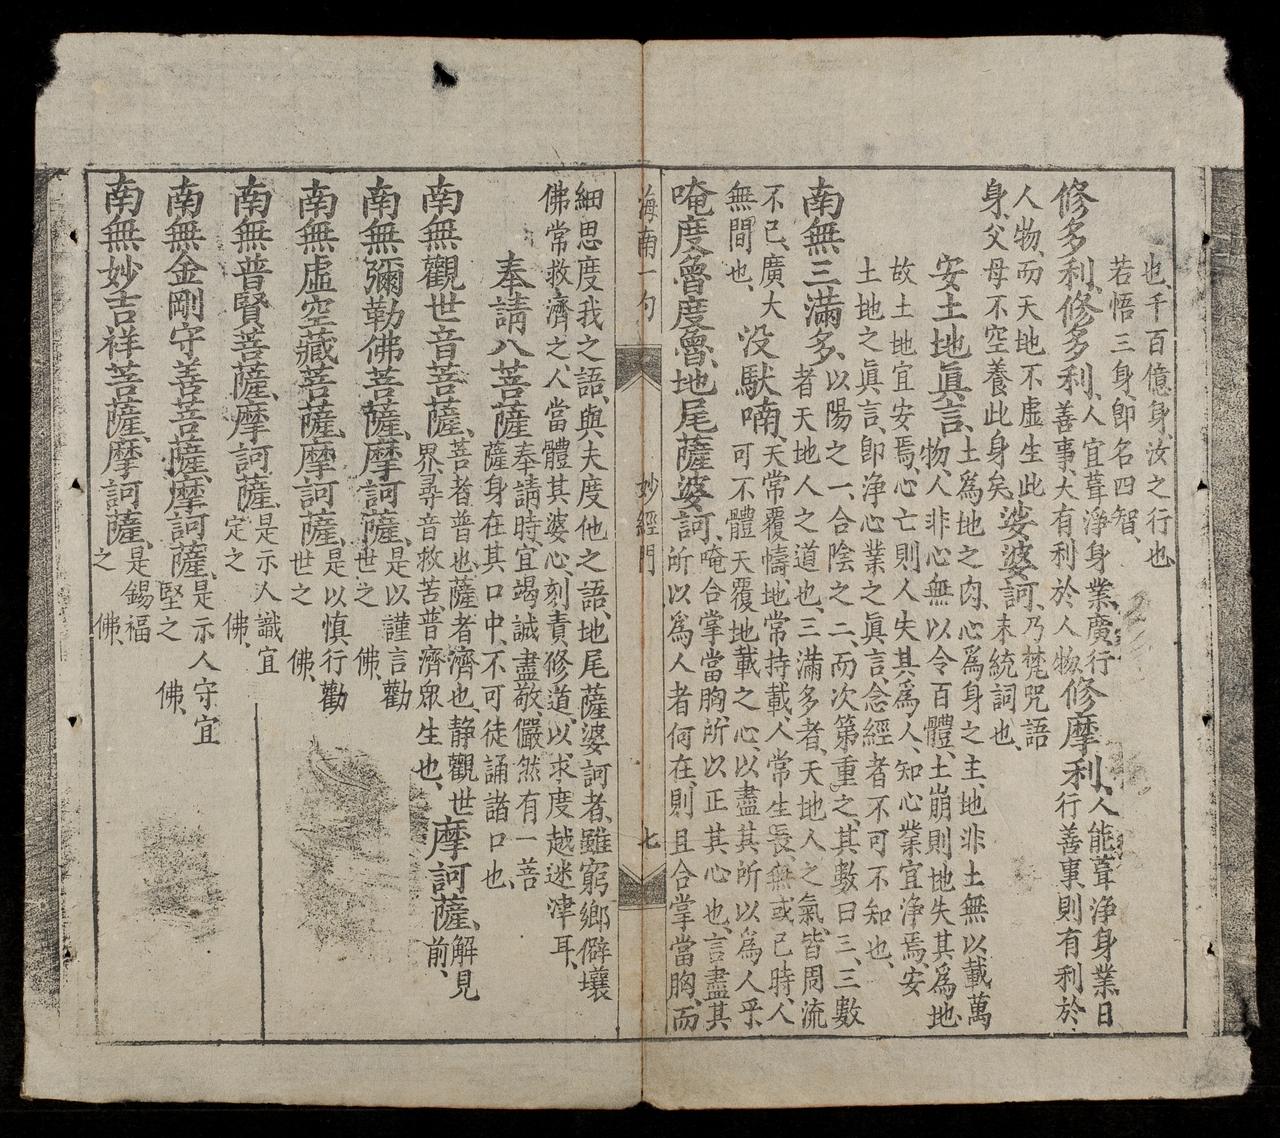 也、千百億身、汝之行也
若悟三身、即名四智、
修多利、修多利、人宜葺淨身業、廣行善事、大有利於人物、修摩利、人能葺淨身業、日行善事、則有利於
人物、而天地不虛生此身、父母不空養此身矣、娑婆訶、乃梵咒語未統詞也、
安土地眞言、土爲地之肉、心爲身之主、地非土無以載萬物、人非心無以令百體、土崩則地失其爲地、
故土地宜安焉、心亡則人失其爲人、知心業宜淨焉、安
土地之眞言、即淨心業之眞言、念經者不可不知也、
南無三滿多、以陽之一、合陰之二、而次第重之、其數曰三、三數者天地人之道也、三滿多者、天地人之氣、皆周流
不已、廣大無間也、没馱喃、天常覆幬、地常持載、人常生長、無或已時、人可不體天覆地載之心、以盡其所以爲人乎
唵度魯度魯、地尾薩婆訶、唵合掌當胸、所以正其心也、言盡其所以爲人者何在、則且合掌當胸、而
海南一勺 妙經門 七
細思度我之語、與夫度他之語、地尾薩婆訶者、雖窮鄉僻壤
佛常救濟之、人當體其婆心、刻責修道、以求度越迷津耳、
奉請八菩薩奉請時、宜竭誠盡敬、儼然有一菩薩身在其口中、不可徒誦諸口也、
南無觀世音菩薩、菩者普也、薩者濟也、静觀世界、尋音救苦、普濟眾生也、摩訶薩、解見前、
南無彌勒佛菩薩、摩訶薩、是以謹言勸世之 佛、
南無虛空藏菩薩、摩訶薩、是以慎行勸世之 佛、
南無普賢菩薩、摩訶薩、是示人識宜定之 佛、
南無金剛守善菩薩、摩訶薩、是示人守宜堅之 佛、
南無妙吉祥菩薩、摩訶薩、是錫福之 佛、